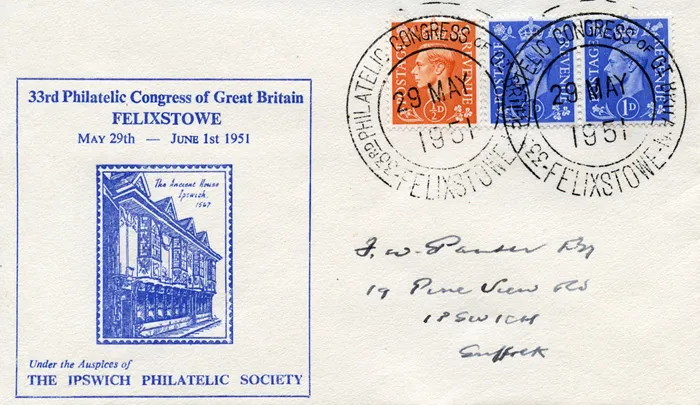 33rd Philatelic Congress of Great Britain
FELIXSTOWE
MAY 29th — JUNE 1st 1951
The Ancient House
Ipswich.
1567
Under the Auspices of
THE IPSWICH PHILATELIC SOCIETY
33RD PHILATELIC CONGRESS OF GT. BRITAIN
29 MAY
1951
FELIXSTOWE
33RD PHILATELIC CONGRESS OF GT. BRITAIN
29 MAY
1951
FELIXSTOWE
POSTAGE
REVENUE
½D
POSTAGE
REVENUE
POSTAGE
REVENUE
1D
F. W.
19 Pine View Rd
IPSWICH
Suffolk